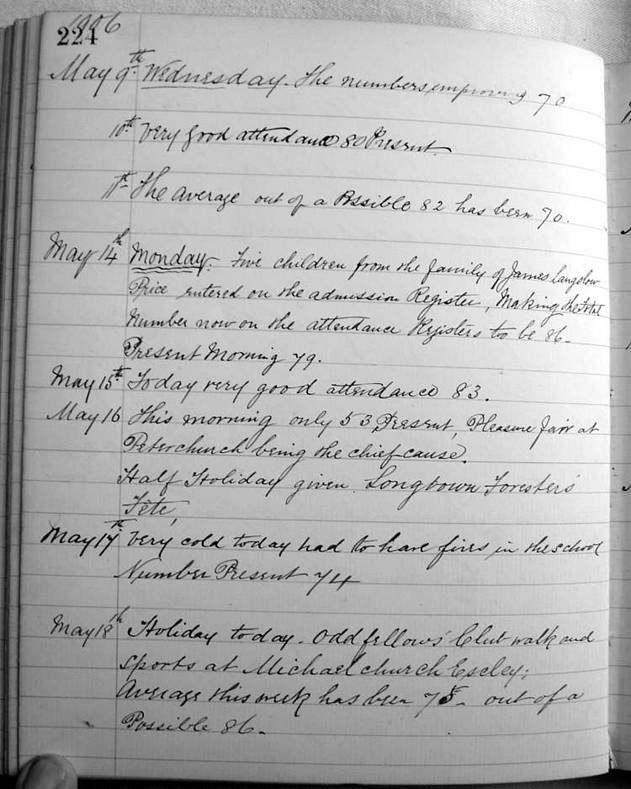 1906
224
May 9th Wednesday. The numbers improving 70
10th Very good attendance 80 Present.
11th The average out of a Possible 82 has been 70.
May 14th Monday. Five children from the family of James Langslow
Price entered on the admission Register, Making the total
Number now on the attendance Registers to be 86.
Present Morning 79.
May 15th Today very good attendance 83.
May 16 This morning only 53 Present, Pleasure fair at
Peterchurch being the chief cause.
Half Holiday given. Longtown Foresters'
Fête,
May 17th Very cold today had to have fires in the school
Number Present 74
May 18th Holiday today. Oddfellows' Club walk and
sports at Michaelchurch Escley;
Average this week has been 75. out of a
Possible 86.